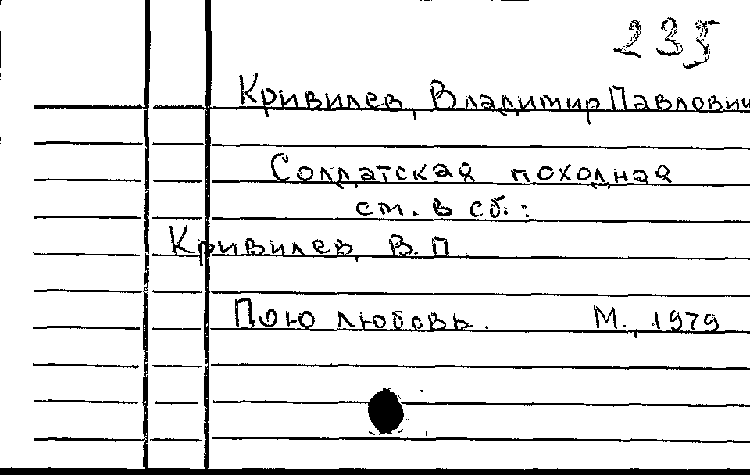 235
Кривилев, Владимир Павлович
Солдатская походная
см. в сб.:
Кривилев, В.П.
Пою любовь. М., 1979